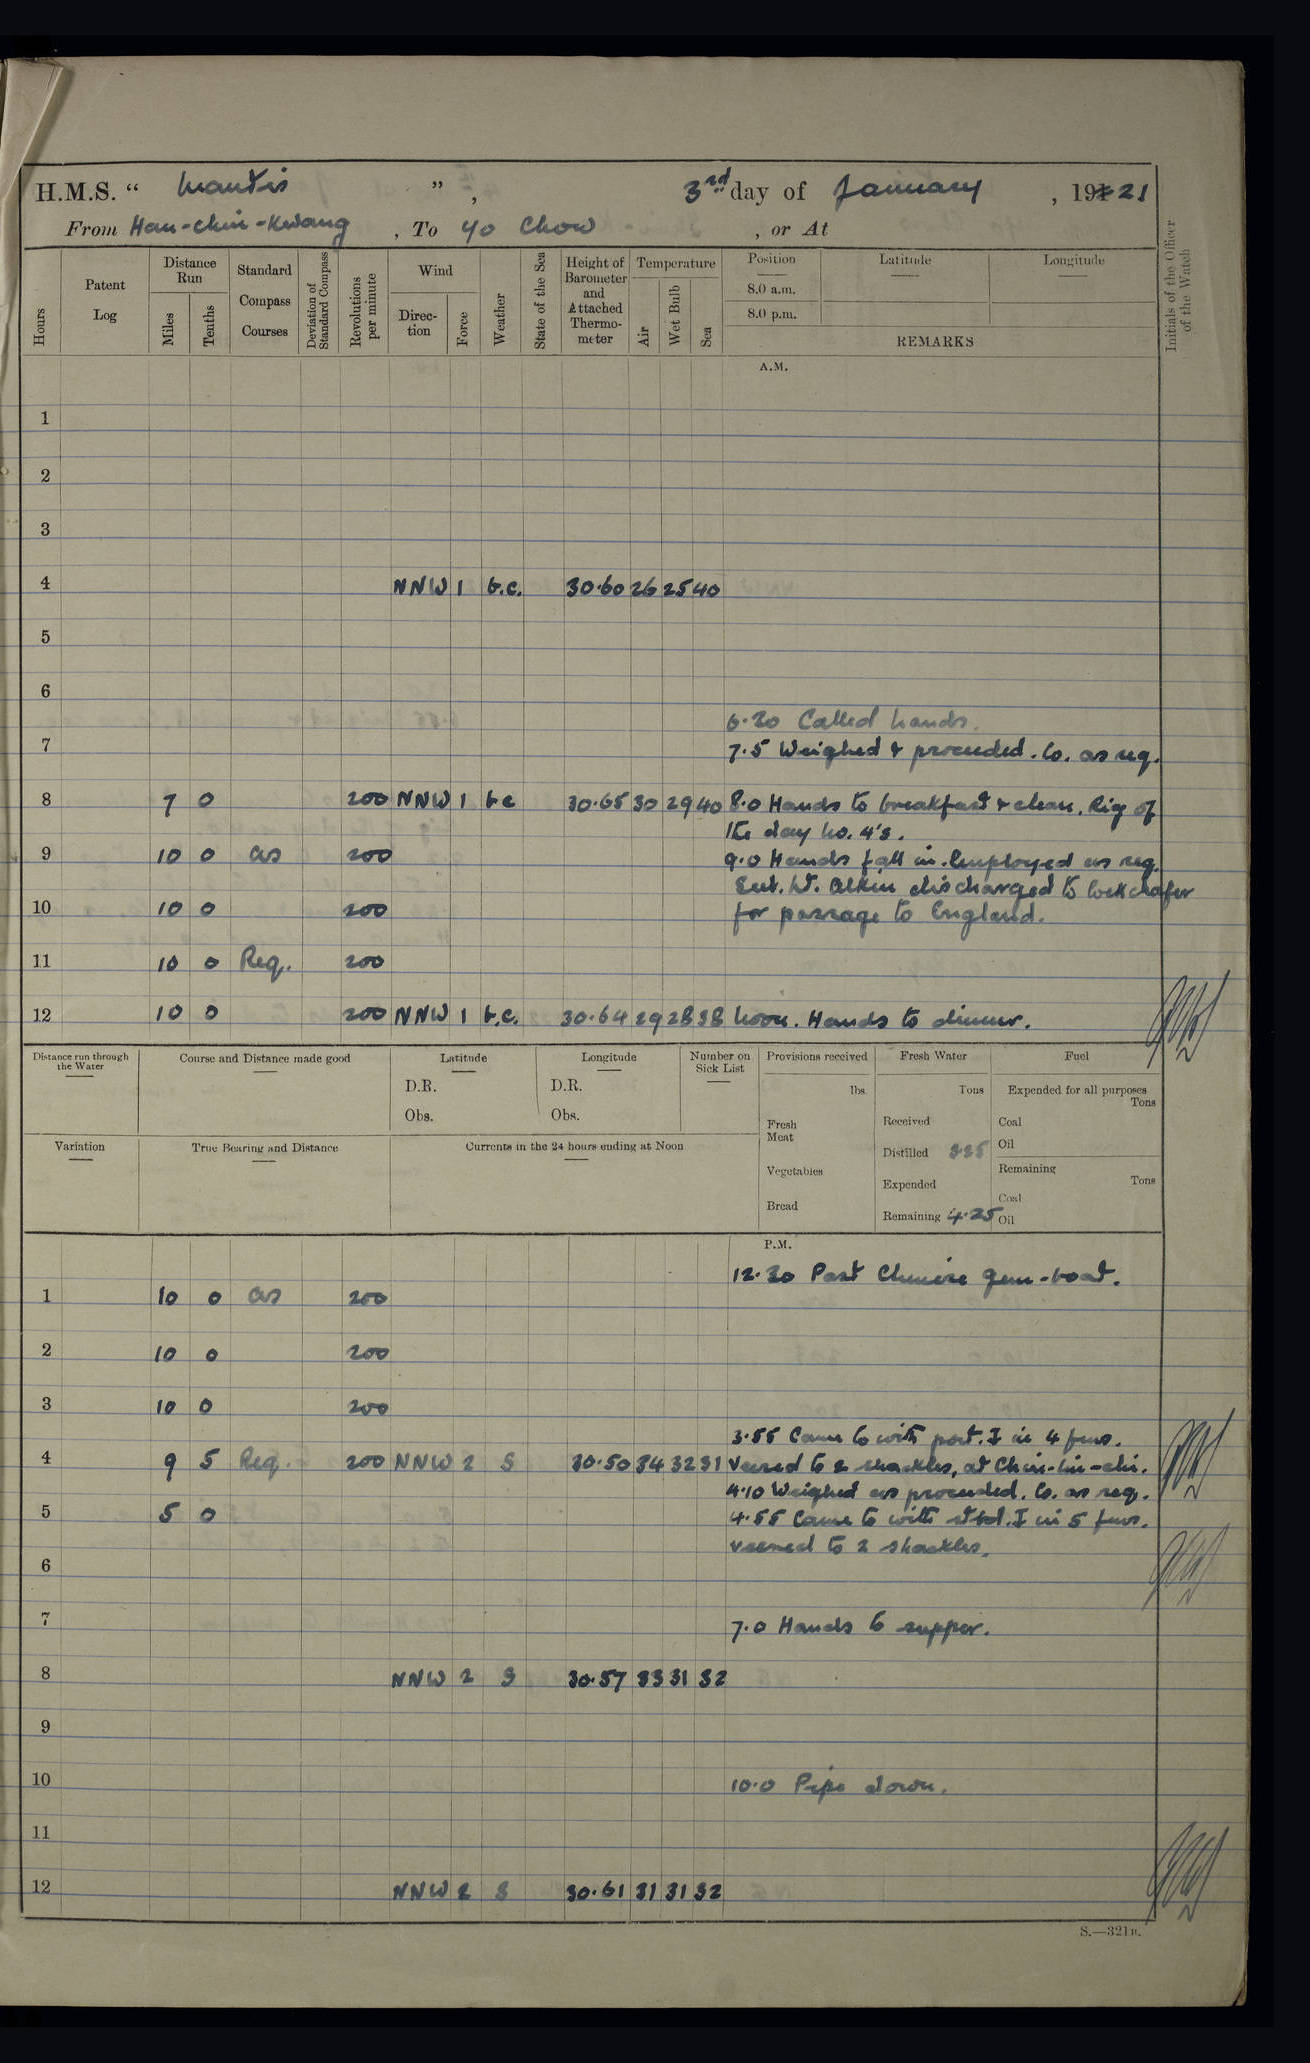 H.M.S. “ Mantis ” , 3rd day of January , 1921
From Han-chin-Kwang , To Yo Chow , or At
Hours
Patent Log
Distance Run
Miles
Tenths
Standard Compass Courses
Deviation of Standard Compass
Revolutions per minute
Wind
Direction
Force
Weather
State of the Sea
Height of Barometer and Attached Thermometer
Temperature
Air
Wet Bulb
Sea
Position
8.0 a.m.
8.0 p.m.
Latitude
Longitude
REMARKS
Initials of the Officer of the Watch
A.M.
1
2
3
4 NNW 1 b.c. 30.60 26 25 40
5
6
6.30 Called hands.
7 7.5 Weighed & proceeded. Co. as req.
8 7 0 200 NNW 1 bc 30.65 30 29 40 8.0 Hands to breakfast & clean. Rig of
the day No. 4's.
9 10 0 as 200 9.0 Hands fall in. Employed as req.
discharged to Cockchafer
10 10 0 200 for passage to England.
11 10 0 Req. 200
12 10 0 200 NNW 1 b.c. 30.64 29 28 38 Noon. Hands to dinner.
Distance run through the Water
Course and Distance made good
Latitude
D.R.
Obs.
Longitude
D.R.
Obs.
Number on Sick List
Provisions received
lbs.
Fresh Meat
Vegetables
Bread
Fresh Water
Tons
Received
Distilled
Expended
Remaining 4.25
Fuel
Expended for all purposes
Tons
Coal
Oil
Remaining
Tons
Coal
Oil
Variation
True Bearing and Distance
Currents in the 24 hours ending at Noon
P.M.
12.30 Past Chinese gun-boat.
1 10 0 as 200
2 10 0 200
3 10 0 200
3.55 Came to with port. I in 4 fms.
4 9 5 Req. 200 NNW 2 S 30.50 34 32 31 Veered to 2 shackles, at
4.10 Weighed as proceeded. Co. as req.
5 5 0 4.55 Came to with stbd. I in 5 fms.
veered to 2 shackles.
6
7 7.0 Hands to supper.
8 NNW 2 S 30.57 33 31 32
9
10 10.0 Pipe down.
11
12 NNW 2 S 30.61 31 31 32
S.—321B.